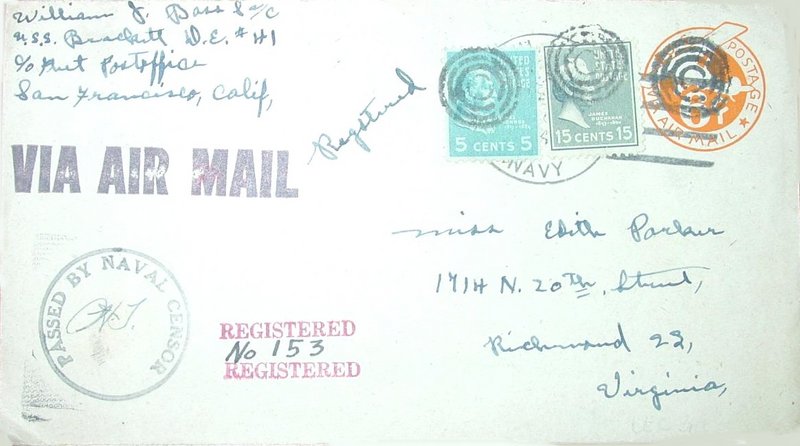 William J. Bass S 2/C
U.S.S. Brackett D.E. #41
c/o Fleet Postoffice
San Francisco, Calif,
Registered
VIA AIR MAIL
5 CENTS 5
JAMES
BUCHANAN
15 CENTS 15
NAVY
POSTAGE
AIR MAIL
Miss Edith Parker
1714 N. 20th, Street,
Richmond 22,
Virginia,
PASSED BY NAVAL CENSOR
REGISTERED
No 153
REGISTERED